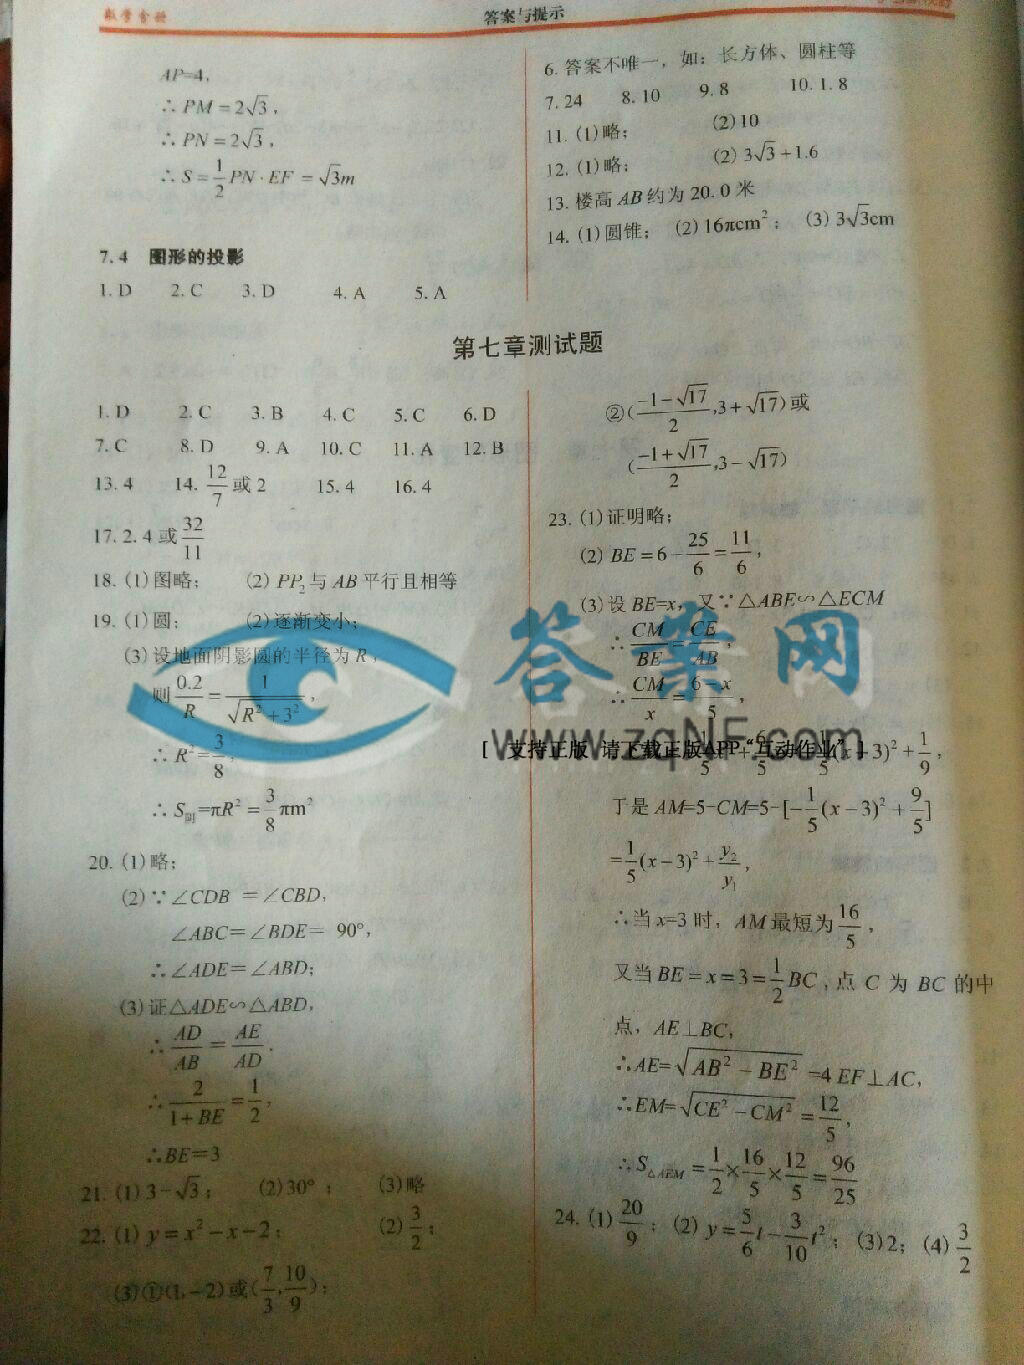 数学
答案与提示
AP=4,
∴PM=2√3,
∴PN=2√3,
∴S=1/2 PN·EF=√3m
7.4 图形的投影
1.D 2.C 3.D 4.A 5.A
6.答案不唯一，如：长方体、圆柱等
7.24 8.10 9.8 10.1.8
11.(1)略； (2)10
12.(1)略； (2)3√3+1.6
13.楼高AB约为20.0米
14.(1)圆锥；(2)16πcm²；(3)3√3cm
第七章测试题
1.D 2.C 3.B 4.C 5.C 6.D
7.C 8.D 9.A 10.C 11.A 12.B
13.4 14.12/7或2 15.4 16.4
17.2.4或32/11
18.(1)图略； (2)PP₂与AB平行且相等
19.(1)圆； (2)逐渐变小；
(3)设地面阴影圆的半径为R,
则0.2/R=1/√(R²+3²),
∴R²=3/8,
∴S阴=πR²=3/8πm²
20.(1)略；
(2)∵∠CDB=∠CBD,
∠ABC=∠BDE=90°,
∴∠ADE=∠ABD;
(3)证△ADE∽△ABD,
∴AD/AB=AE/AD.
∴2/(1+BE)=1/2,
∴BE=3
21.(1)3-√3； (2)30°； (3)略
22.(1)y=x²-x-2； (2)3/2；
(3)①(1,-2)或(7/3,10/9)；
②((-1-√17)/2,3+√17)或
((-1+√17)/2,3-√17)
23.(1)证明略；
(2)BE=6-25/6=11/6,
(3)设BE=x，又∵△ABE∽△ECM
∴CM/BE=CE/AB,
∴CM/x=(6-x)/5,
(x-3)²+1/9,
于是AM=5-CM=5-[-1/5(x-3)²+9/5]
=1/5(x-3)²+y₂/y₁,
∴当x=3时，AM最短为16/5,
又当BE=x=3=1/2BC，点C为BC的中
点，AE⊥BC,
∴AE=√(AB²-BE²)=4 EF⊥AC,
∴EM=√(CE²-CM²)=12/5,
∴S△AEM=1/2×16/5×12/5=96/25
24.(1)20/9；(2)y=5/6t-3/10t²；(3)2；(4)3/2
答案网
www.zqNF.com
[ 支持正版 请下载正版APP“互动作业” ]